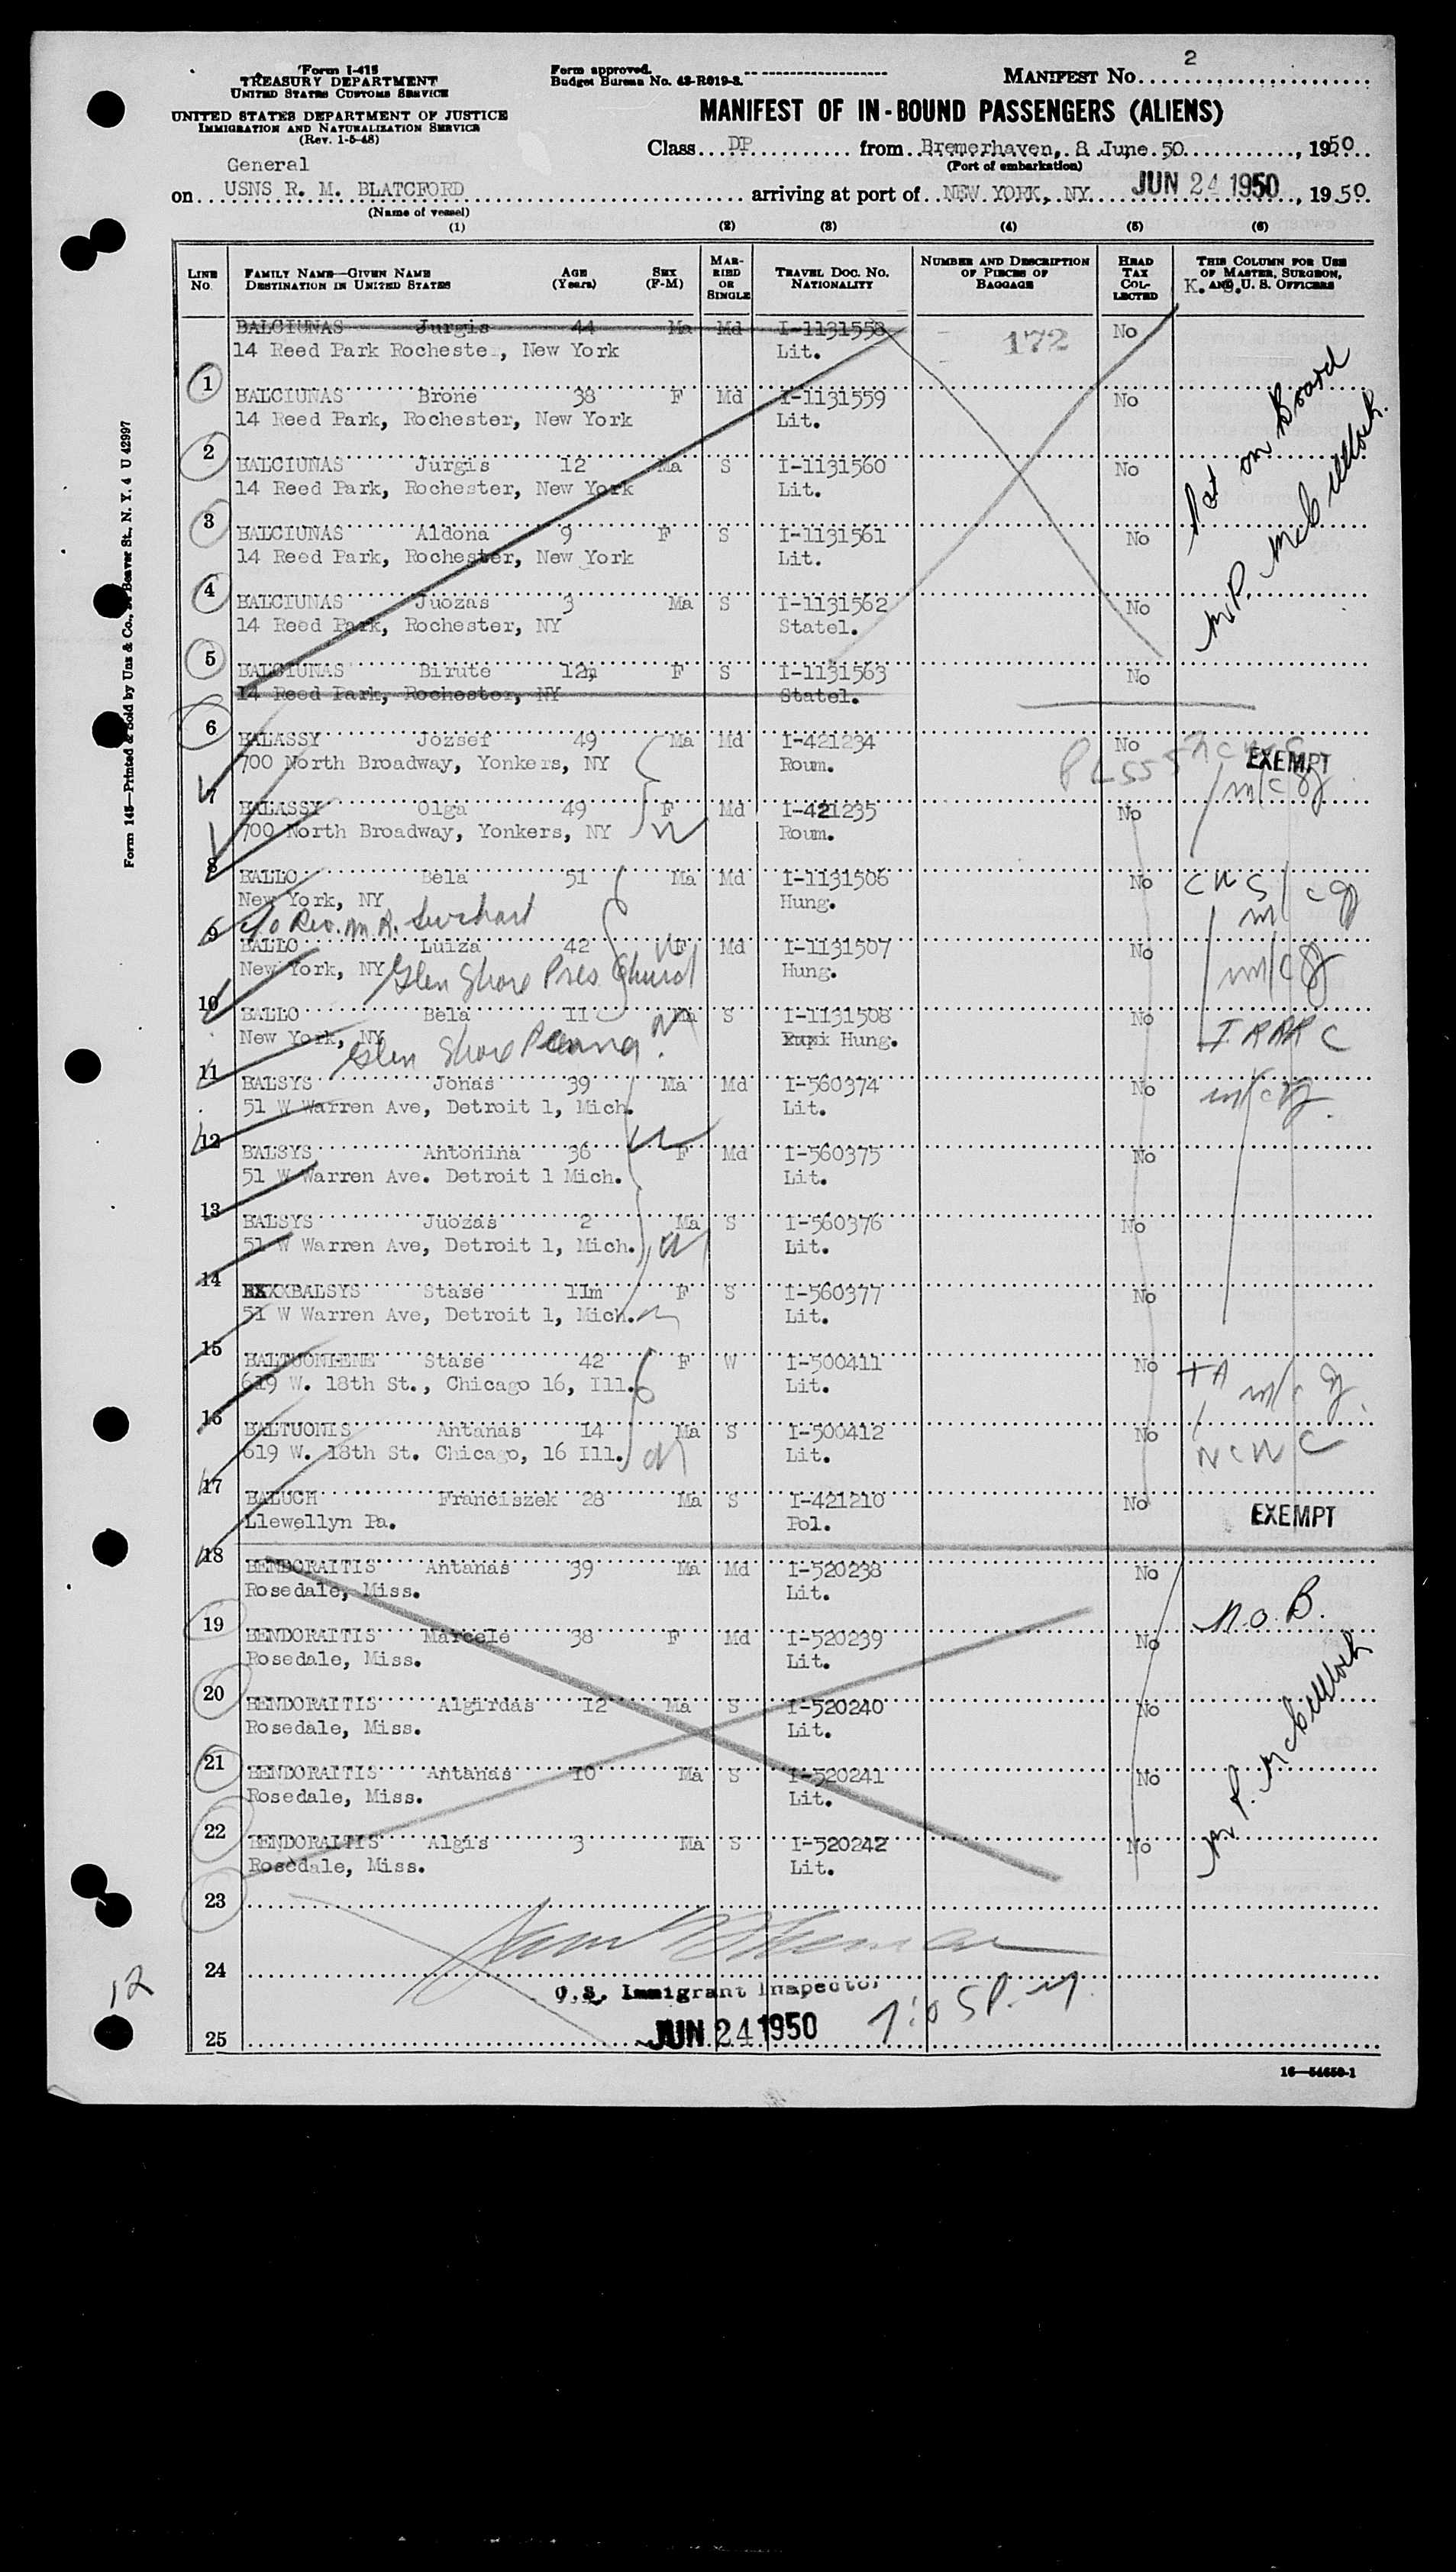 Form I-415
TREASURY DEPARTMENT
UNITED STATES CUSTOMS SERVICE
UNITED STATES DEPARTMENT OF JUSTICE
IMMIGRATION AND NATURALIZATION SERVICE
(Rev. 1-5-48)
Form approved.
Budget Bureau No. 43-R019-3.
MANIFEST No. 2
MANIFEST OF IN-BOUND PASSENGERS (ALIENS)
Class DP from Bremerhaven, 8 June 50, 1950
(Port of embarkation)
General
on USNS R. M. BLATCFORD arriving at port of NEW YORK, NY. JUN 24 1950, 1950
(Name of vessel)
(1) (2) (3) (4) (5) (6)
LINE No. FAMILY NAME—GIVEN NAME DESTINATION IN UNITED STATES AGE (Years) SEX (F-M) MARRIED OR SINGLE TRAVEL DOC. NO. NATIONALITY NUMBER AND DESCRIPTION OF PIECES OF BAGGAGE HEAD TAX COLLECTED THIS COLUMN FOR USE OF MASTER, SURGEON, AND U. S. OFFICERS
BALCIUNAS Jurgis 44 Ma Md I-1131558 172 No
14 Reed Park Rochester, New York Lit.
1
BALCIUNAS Brone 38 F Md I-1131559 No
14 Reed Park, Rochester, New York Lit.
2
BALCIUNAS Jurgis 12 Ma S I-1131560 No
14 Reed Park, Rochester, New York Lit.
3
BALCIUNAS Aldona 9 F S I-1131561 No
14 Reed Park, Rochester, New York Lit.
4
BALCIUNAS Juozas 3 Ma S I-1131562 No
14 Reed Park, Rochester, NY Statel.
5
BALCIUNAS Birute 12m F S I-1131563 No
14 Reed Park, Rochester, NY Statel.
Not on Board
M.P. McCulloch.
6
BALASSY Jozsef 49 Ma Md I-421234 No EXEMPT
700 North Broadway, Yonkers, NY Roum.
7
BALASSY Olga 49 F Md I-421235 No
700 North Broadway, Yonkers, NY Roum.
8
BALLO Bela 51 Ma Md I-1131506 No
New York, NY Hung.
c/o Rev. M. R.
9
BALLO Luiza 42 F Md I-1131507 No
New York, NY Hung.
Glen Shore Pres Church
10
BALLO Bela 11 Ma S I-1131508 No
New York, NY Hung.
Glen Shore Penna.
11
BALSYS Jonas 39 Ma Md I-560374 No
51 W Warren Ave, Detroit 1, Mich. Lit.
12
BALSYS Antonina 36 F Md I-560375 No
51 W Warren Ave. Detroit 1 Mich. Lit.
13
BALSYS Juozas 2 Ma S I-560376 No
51 W Warren Ave, Detroit 1, Mich. Lit.
14
BXXXBALSYS Stase 11m F S I-560377 No
51 W Warren Ave, Detroit 1, Mich. Lit.
15
BALTUONIENE Stase 42 F W I-500411 No
619 W. 18th St., Chicago 16, Ill. Lit.
16
BALTUONIS Antanas 14 Ma S I-500412 No
619 W. 18th St. Chicago, 16 Ill. Lit.
17
BALUCH Franciszek 28 Ma S I-421210 No EXEMPT
Llewellyn Pa. Pol.
18
BENDORAITIS Antanas 39 Ma Md I-520238 No
Rosedale, Miss. Lit.
19 N.O.B.
BENDORAITIS Marcele 38 F Md I-520239 No
Rosedale, Miss. Lit.
20
BENDORAITIS Algirdas 12 Ma S I-520240 No
Rosedale, Miss. Lit.
21
BENDORAITIS Antanas 10 Ma S I-520241 No
Rosedale, Miss. Lit.
22
BENDORAITIS Algis 3 Ma S I-520242 No
Rosedale, Miss. Lit.
M. P. McCulloch
23
24
U.S. Immigrant Inspector
25 JUN 24 1950 7:05 P.M.
12
16—54650-1
Form 145—Printed & Sold by Unz & Co., Beaver St., N. Y. 4 U 42997